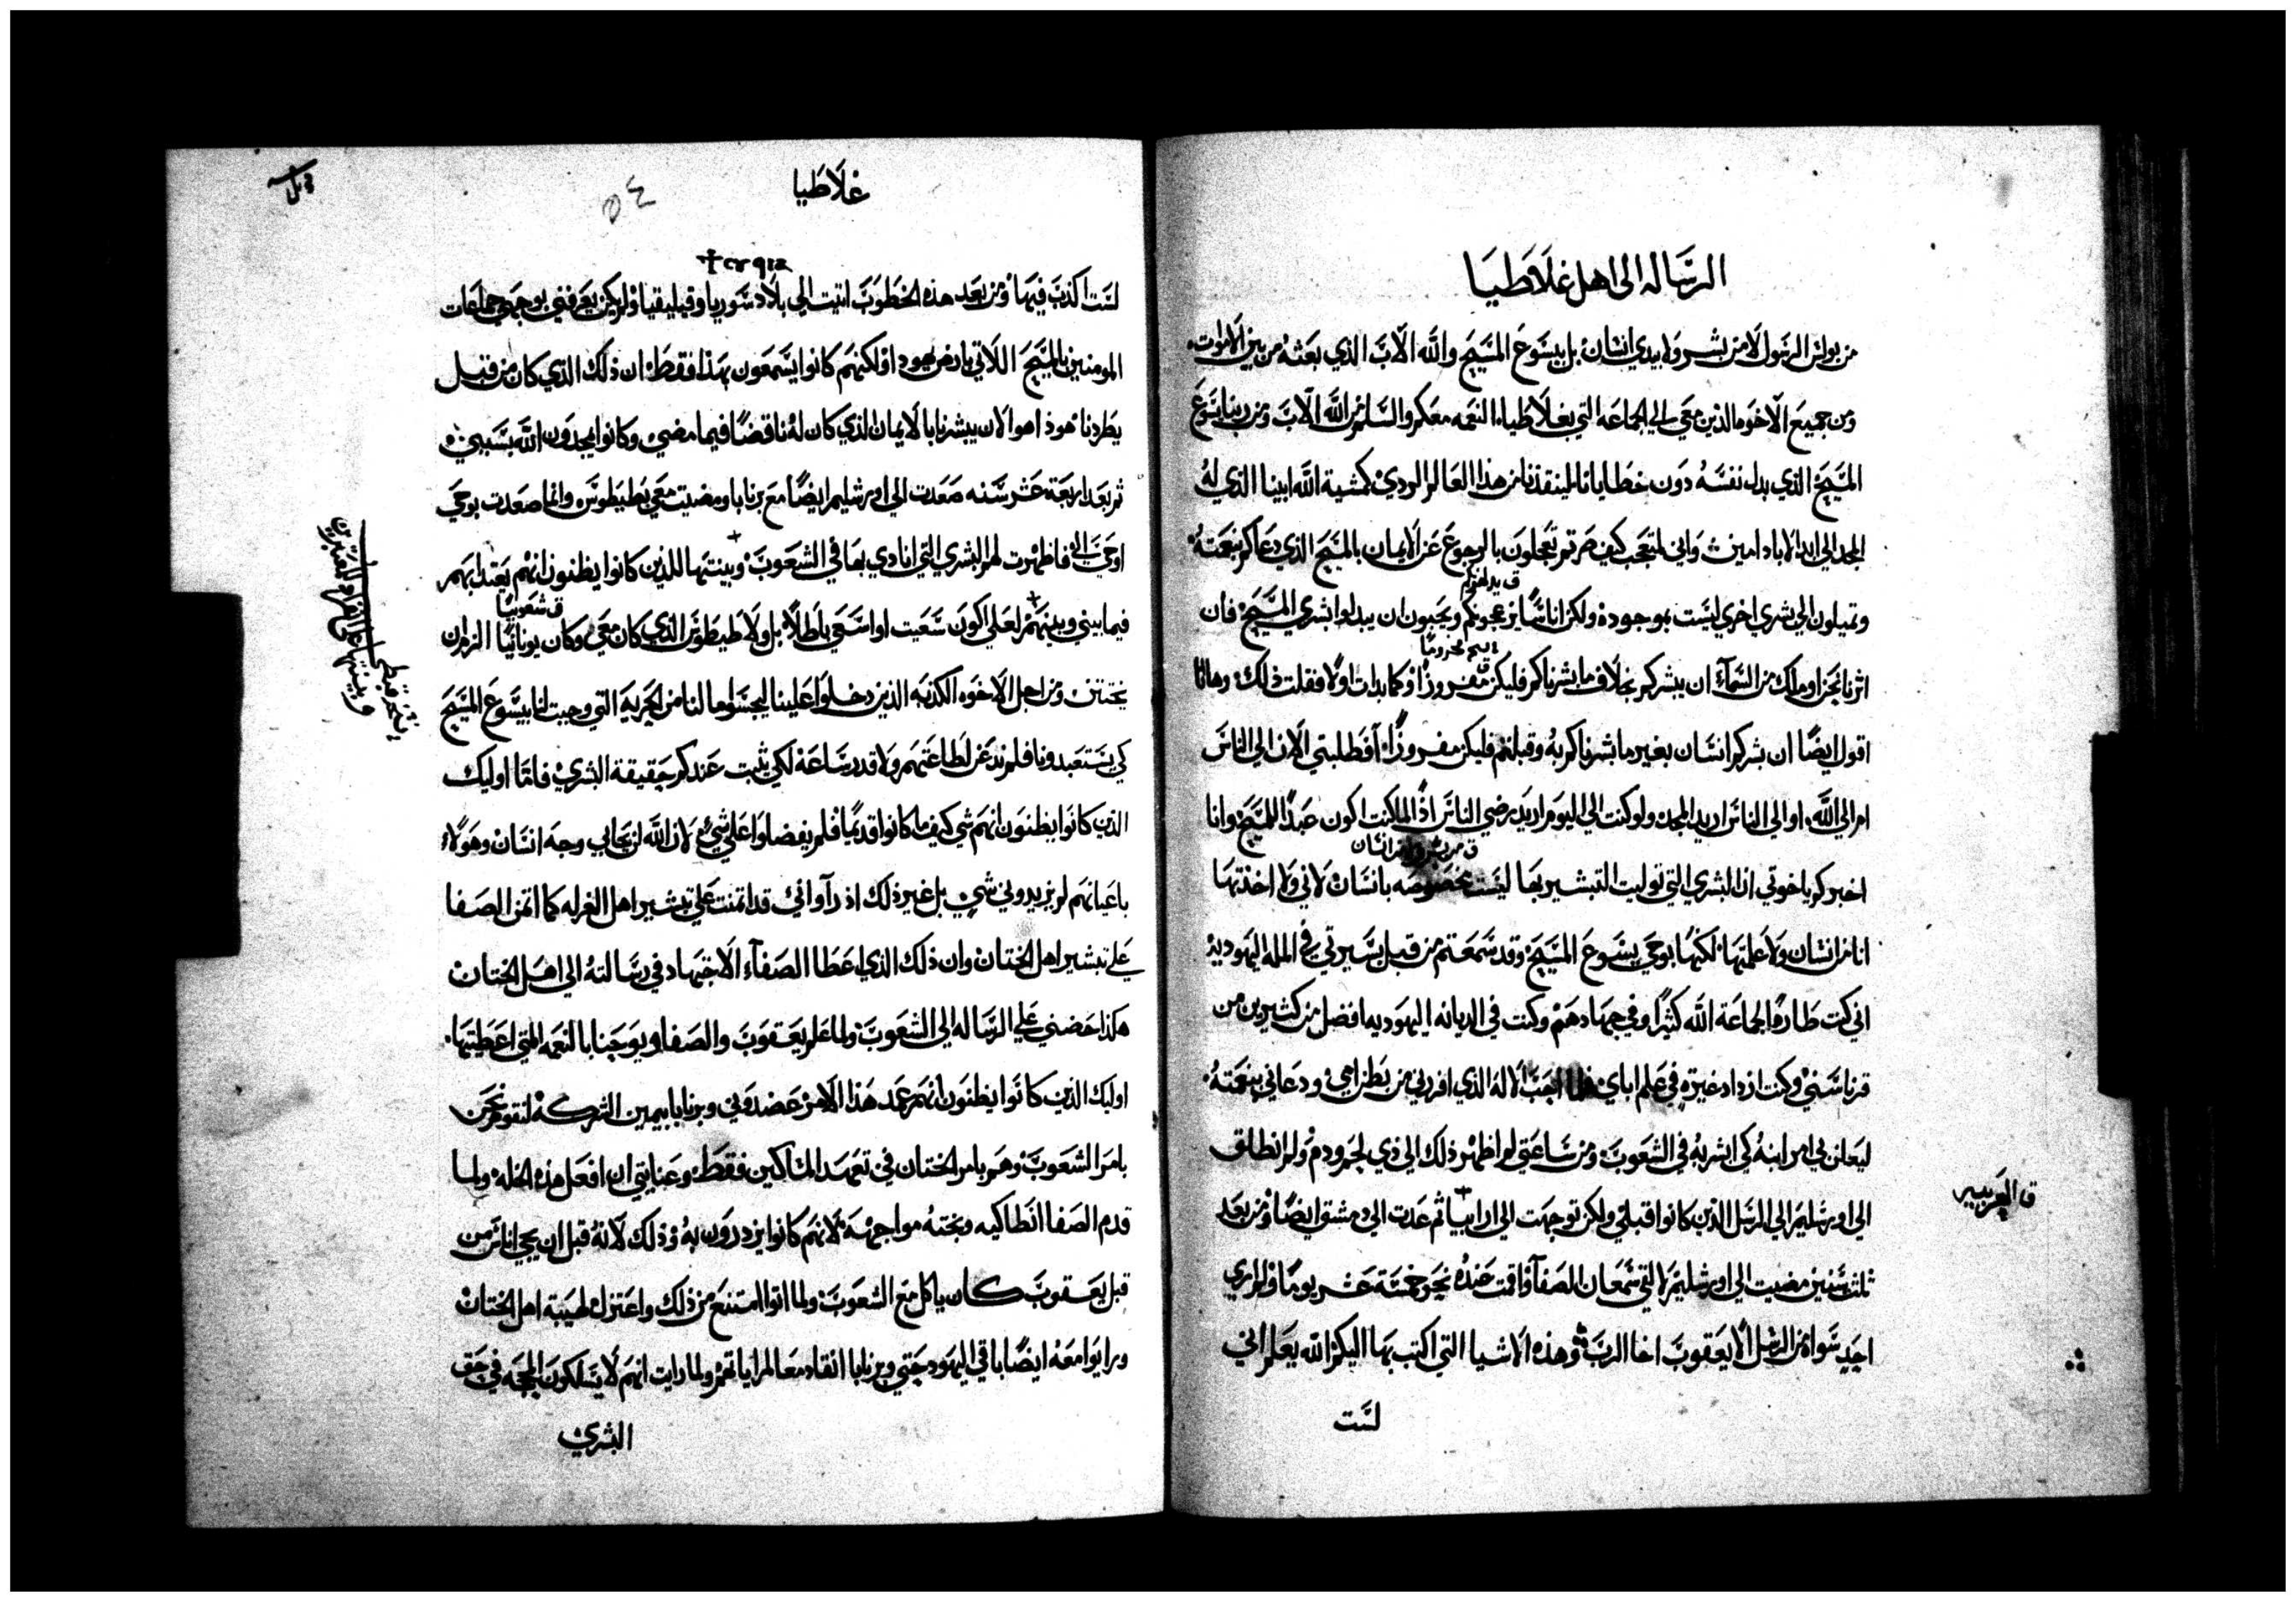 الرساله الى اهل غلاطيا
من بولس الرسول لا من بشر ولا بيدي انسان بل بيسوع المسيح والله الاب الذي بعثه من بين الاموات
ومن جميع الاخوه الذين معي الي الجماعه التي بغلاطيا النعمه معكم والسلام من الله الاب ومن ربنا يسوع
المسيح الذي بدل نفسه دون خطايانا لينقذنا من هذا العالم الردي كمشية الله ابينا الذي له
المجد الي ابد الاباد امين واني لمتعجب كيف صرتم تعجلون بالرجوع عن الايمان بالمسيح الذي دعاكم بنعمته
وتميلون الي بشري اخري ليست بموجوده ولكن اناسا يزعجونكم ويحبون ان يبدلوا بشري المسيح فان
اثرنا نحن او ملاك من السمآء ان يبشركم بخلاف ما بشرناكم فليكن مفروزا وكما بدات اولا فقلت ذلك وهانا
اقول ايضا ان بشركم انسان بغير ما بشرناكم به وقبلتم فليكن مفروزا أفطلبتي الان الي الناس
ام الي الله او الي الناس اريد المجد ولو كنت الي اليوم اريد رضي الناس اذا لما كنت اكون عبدا للمسيح وانا
اخبركم ياخوتي ان البشري التي توليت التبشير بها ليست مخصوصه بانسان لاني ولا اخذتها
انا من انسان ولا علمتها لكنها بوحي يسوع المسيح وقد سمعتم من قبل بسيرتي في المله اليهوديه
اني كنت طاردا لجماعة الله كثيرا وفي جهادهم وكنت في الديانه اليهوديه افضل من كثيرين من
قرناسني وكنت ازداد غيره في علم اباي فلما احب الاله الذي افردني من بطن امي ودعاني بنعمته
ليعلن بي امر ابنه كي ابشر به في الشعوب ومن ساعتي لم اظهر ذلك الي ذي لحم ودم ولم انطلق
الي اورشليم الي الرسل الذين كانوا قبلي ولكن توجهت الي ارابيا ثم عدت الي دمشق ايضا ومن بعد
ق العربيه
ثلث سنين مضيت الي اورشليم لالتقي شمعان الصفآ واقمت عنده نحو خمسة عشر يوما ولم اري
احد سواه من الرسل الا يعقوب اخا الرب وهذه الاشيا التي اكتب بها اليكم الله يعلم اني
لست
غلاطيا
٥٤
لست اكذب فيها ومن بعد هذه الخطوب اتيت الي بلاد سوريا وقيليقيا ولم يكن يعرفني بوجهي جماعات
المومنين بالمسيح اللاتي بارض يهودا ولكنهم كانوا يسمعون بهذا فقط ان ذلك الذي كان من قبل
يطردنا هوذا هو الان يبشرنا بالايمان الذي كان له ناقضا فيما مضي وكانوا يمجدون الله بسببي
ثم بعد اربعة عشر سنه صعدت الي اورشليم ايضا مع برنابا ومضيت معي بطيطوس وانما صعدت بوحي
اوحي الي فاظهرت لهم البشري التي انادي بها في الشعوب وبينتها للذين كانوا يظنون انهم يعتد بهم
فيما بيني وبينهم لعلي اكون سعيت او اسعي باطلا بل ولا طيطوس الذي كان معي وكان يونانيا الزم ان
ق شعوبيا
يختتن ومن اجل الاخوه الكذبه الذين دخلوا علينا ليجسوا ما لنا من الحريه التي وجبت لنا بيسوع المسيح
كي يستعبدونا فلم نذعن لطاعتهم ولا قدر ساعة لكي يثبت عندكم حقيقة البشري فاما اوليك
الذين كانوا يظنون انهم شي كيف ما كانوا قديما فلم يفضلوا علي شي لان الله لن يحابي وجه انسان وهولاء
باعيانهم لم يزيدوني شي بل غير ذلك اذ رآوا اني قد اتمنت علي تبشير اهل الغرله كما اتمن الصفا
علي تبشير اهل الختان وان ذلك الذي اعطا الصفآء الاجتهاد في رسالته الي اهل الختان
هكذا حضني علي الرساله الي الشعوب ولما علم يعقوب والصفا ويوحنا بالنعمه التي اعطيتها
اوليك الذين كانوا يظنون انهم عمد هذا الامر عضدوني وبرنابا بيمين الشركه لنقوم نحن
بامر الشعوب وهم بامر الختان في تعهد المساكين فقط وعنايتي ان افعل هذه الخله ولما
قدم الصفا انطاكيه وبخته مواجهة لانهم كانوا يزدرون به وذلك لانه قبل ان يجي اناس من
قبل يعقوب كان ياكل مع الشعوب ولما اتوا امتنع من ذلك واعتزل لهيبة اهل الختان
ورايوا معه ايضا باقي اليهود حتي وبرنابا انقاد معا لمراياتهم ولما رايت انهم لا يسلكون المحجه في حق
البشري